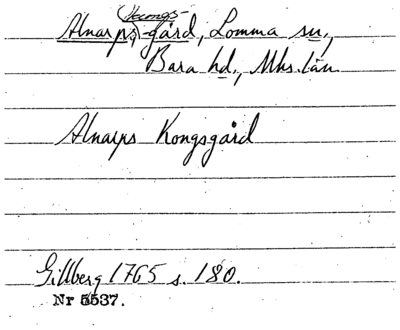 Kungs-
Alnarps, -gård, Lomma sn.,
Bara hd., Mhs. län
Alnarps Kongsgård
Gillberg 1765 s. 180.
Nr 5537.